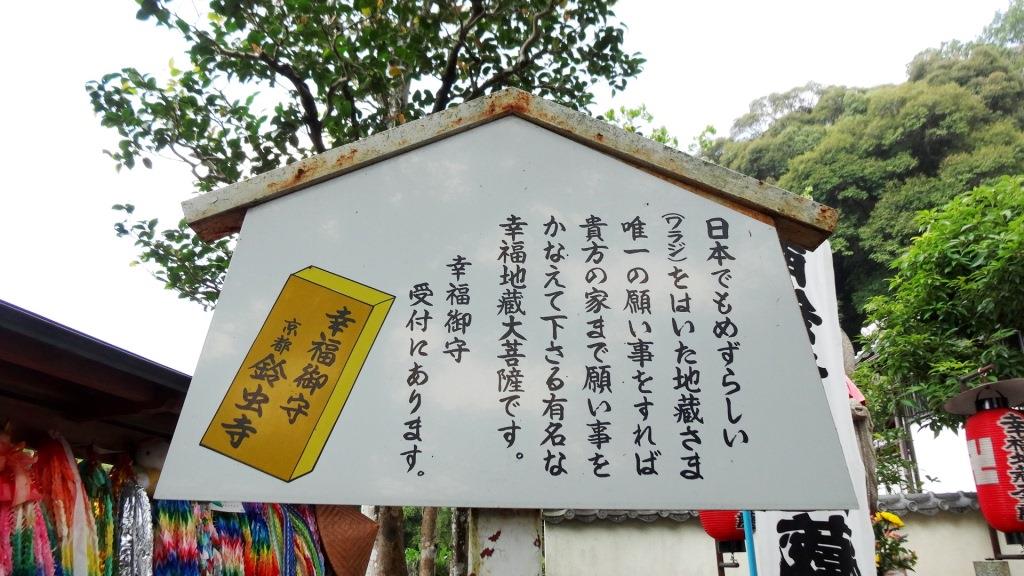 日本でもめずらしい
(ワラジ)をはいた地蔵さま
唯一の願い事をすれば
貴方の家まで願い事を
かなえて下さる有名な
幸福地蔵大菩薩です。
幸福御守
受付にあります。
幸福御守
京都 鈴虫寺
幸福地蔵